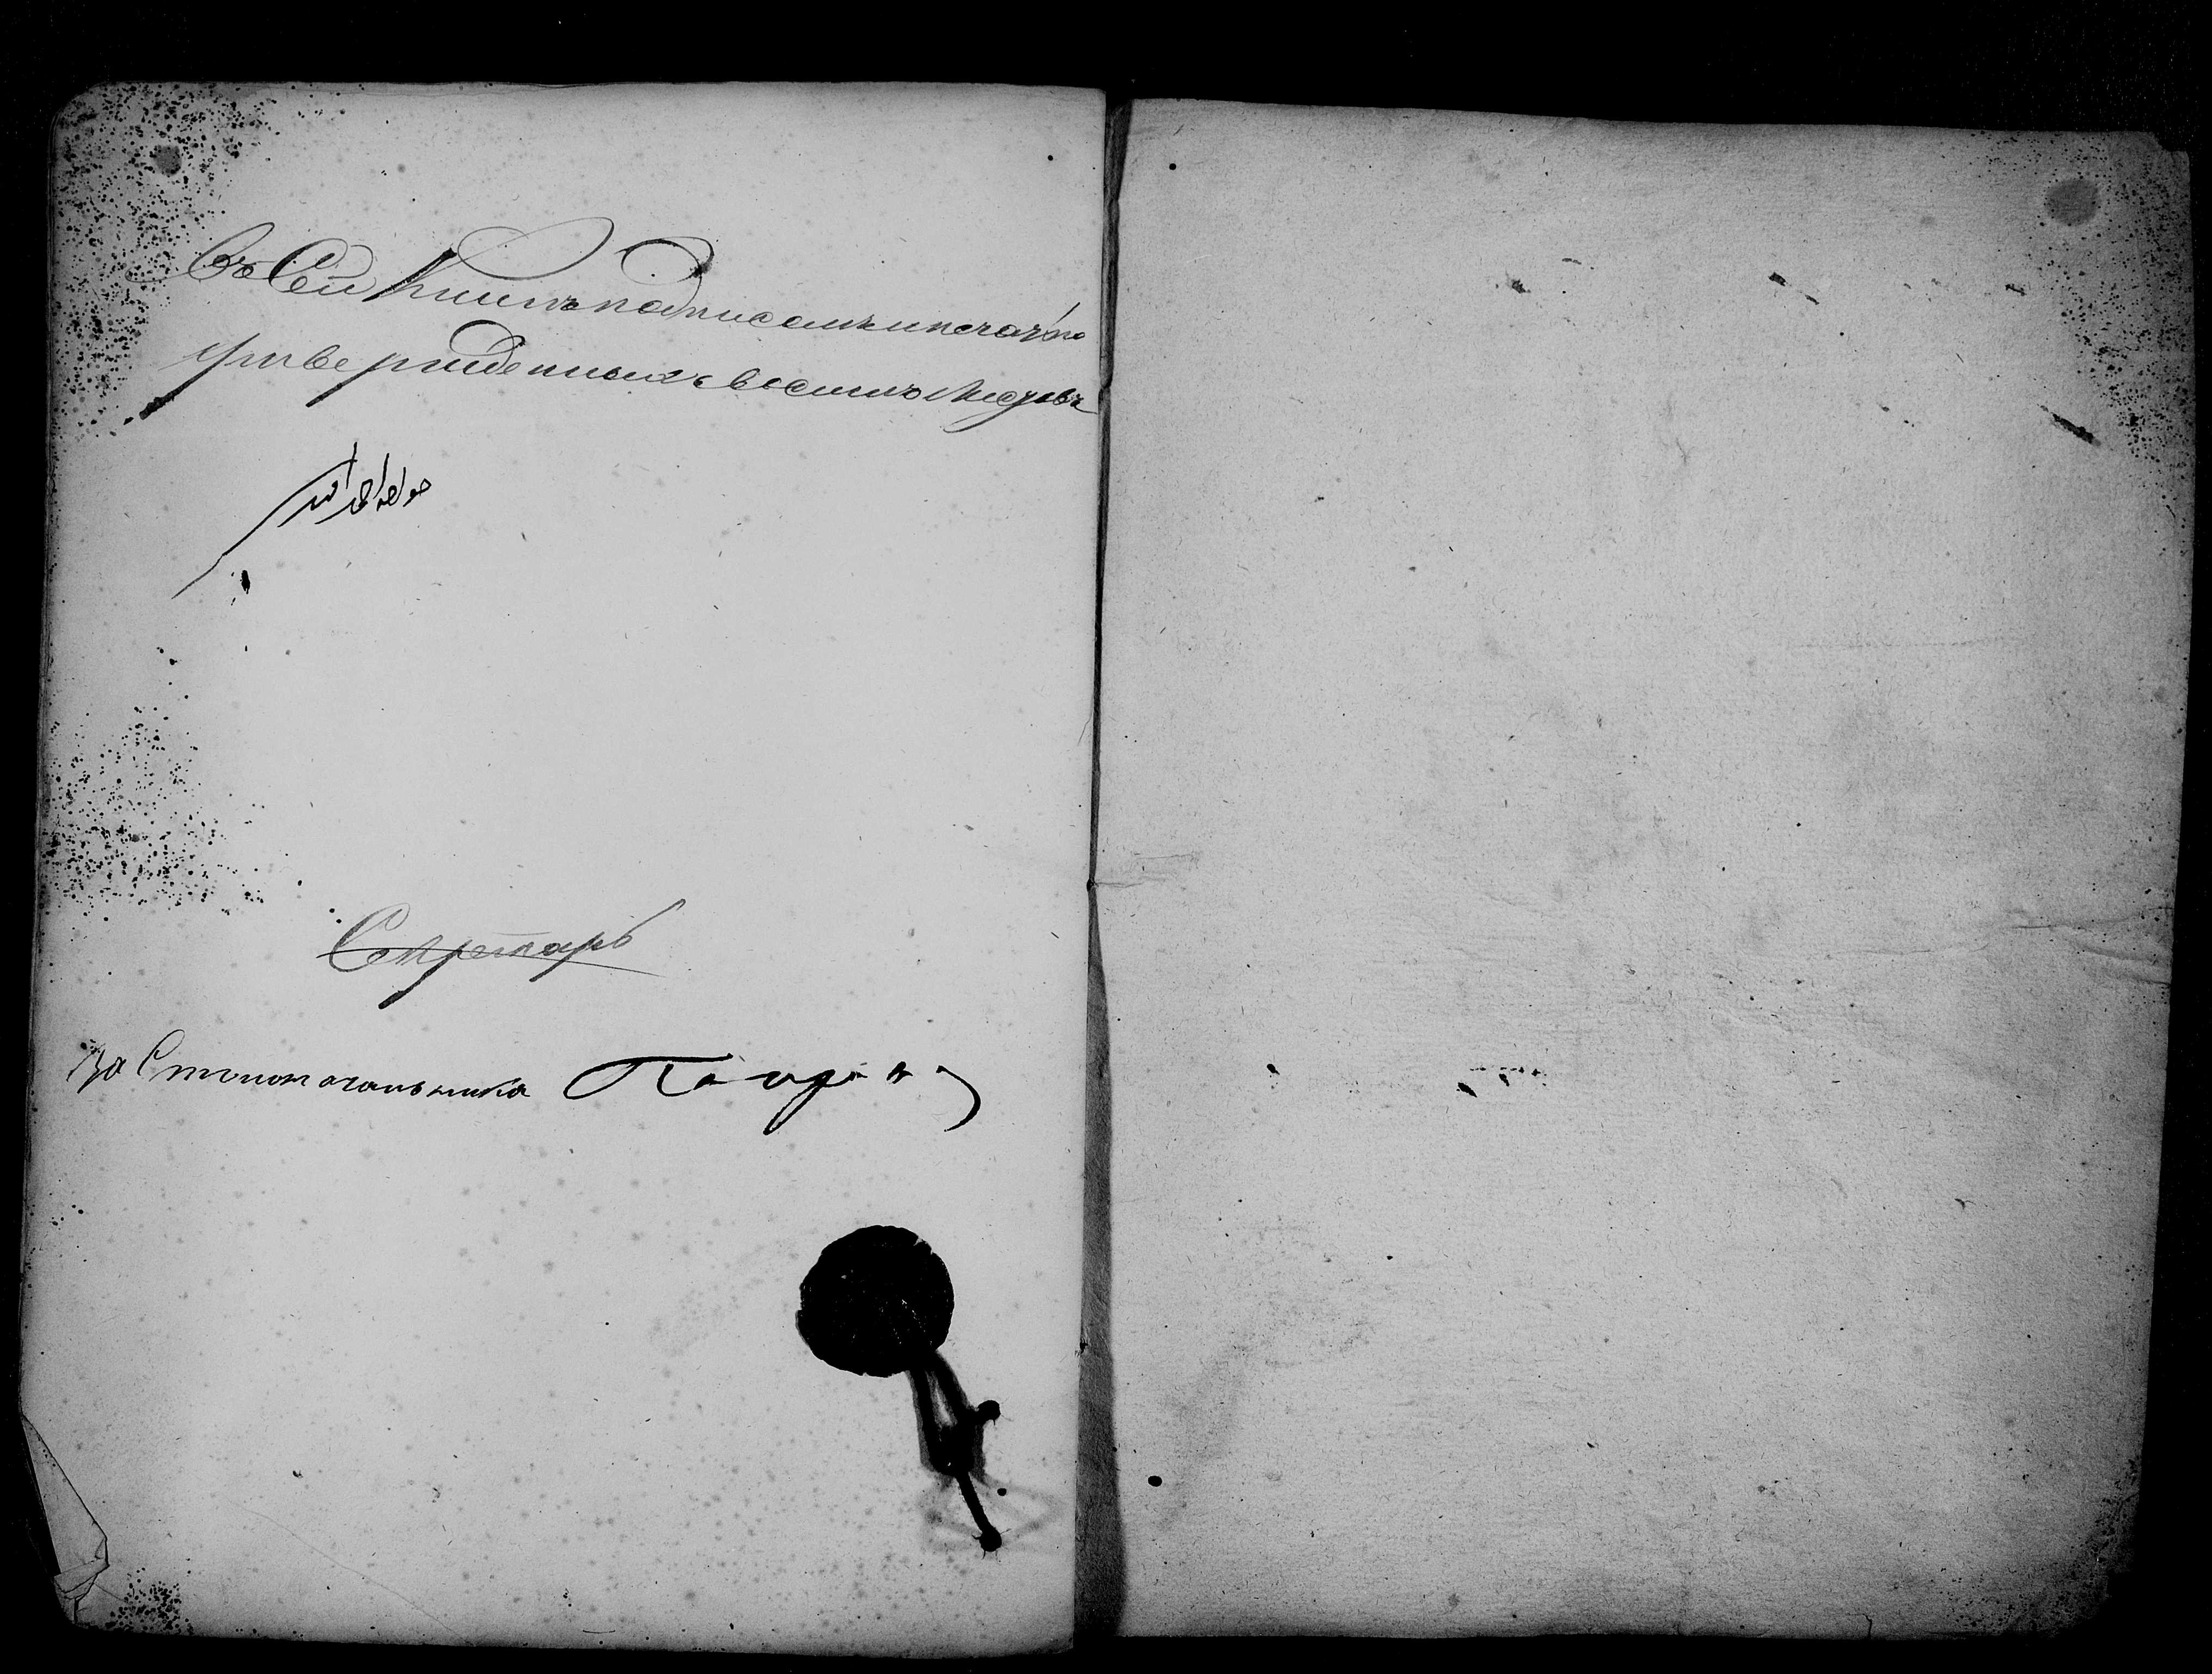 Въ Сей Книгѣ подписомъ и печатью
утвержденныхъ восемь листовъ
Секретарь
За Столоначальника